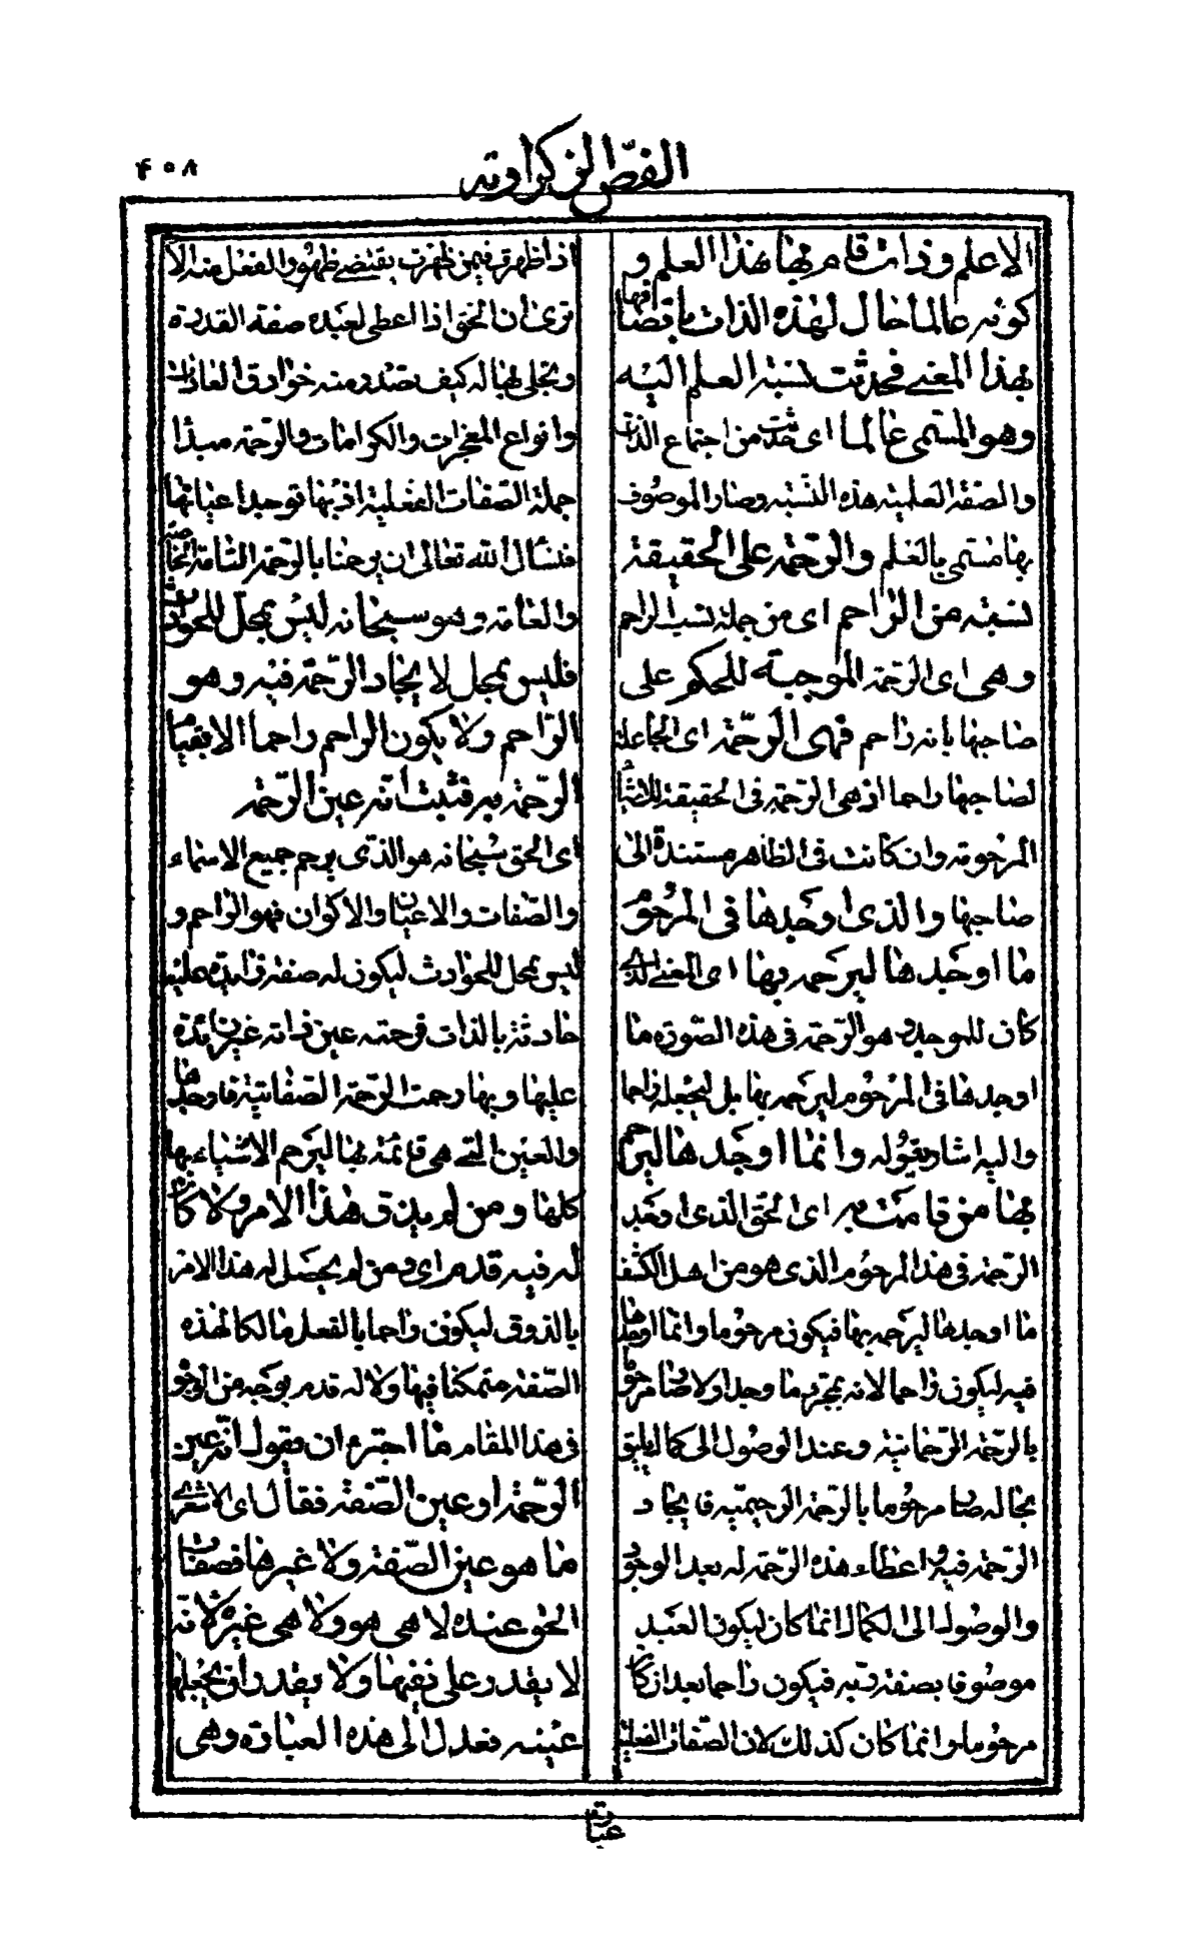 ٤٠٨
الفصّ الزكراويّة
الا علم وذات قام بها هذا العلم و
كونه عالما حال لهذه الذات باتصافها
بهذا المعنى فحدثت نسبة العلم اليه
وهو المسمى عالما اى حدثت من اجتماع الذات
والصفة العلمية هذه النسبة وصار الموصوف
بها مسمى بالعلم والرّحمة على الحقيقة
نسبة من الرّاحم اى من جملة نسب الراحم
وهى اى الرّحمة الموجبة للحكم على
صاحبها بانه راحم فهى الرّحمة اى الجاعلة
لصاحبها راحما اذ هى الرّحمة فى الحقيقة للاشياء
المرحومة وان كانت فى الظاهر مستندة الى
صاحبها والذى اوجدها فى المرحوم
ما اوجدها ليرحمه بها اى المعنى الذى
كان للموجد وهو الرّحمة فى هذه الصّورة ما
اوجدها فى المرحوم ليرحمه بها بل ليجعله راحما
واليه اشار بقوله وانما اوجدها ليرحم
بها من قامت به اى الحق الذى اوجد
الرّحمة فى هذا المرحوم الذى هو من اهل الكشف
ما اوجدها ليرحمه بها فيكون مرحوما وانما اوجدها
فيه ليكون راحما لانه بمجرّد ما وجد اولا صار مرحوما
بالرّحمة الرّحمانية وعند الوصول الى كمال يليق
بحاله صار مرحوما بالرّحمة الرّحيميّة فايجاد
الرّحمة فيه و اعطاء هذه الرّحمة له بعد الوجود
والوصول الى الكمال انما كان ليكون العبد
موصوفا بصفة ربّه فيكون راحما بعد ان كان
مرحوما وانما كان كذلك لان الصّفات الفعلية
اذا ظهرت فيمن ظهرت يقتضى ظهور الفعل منه الا
ترى ان الحق اذا اعطى لعبده صفة القدرة
وتجلى بها له كيف تصدر منه خوارق العادات
وانواع المعجزات والكرامات والرّحمة مبدأ
جملة الصّفات الفعلية اذ بها توجد اعيانها
فنسأل اللّه تعالى ان يرحمنا بالرّحمة التامة الخاصة
والعامة وهو سبحانه ليس بمحلّ للحوادث
فليس بمحل لايجاد الرّحمة فيه وهو
الرّاحم ولا يكون الراحم راحما الا بقيام
الرّحمة به فثبت انّه عين الرّحمة
اى الحق سبحانه هو الذى يرحم جميع الاسماء
والصّفات والاعيان والاكوان فهو الرّاحم و
ليس بمحل للحوادث ليكون له صفة زايدة عليه
حادثة بالذات فرحمته عين ذاته غير زائدة
عليها وبها رحمت الرّحمة الصّفاتية فاوجدها
والعين التى هى قائمة بها ليرحم الاشياء بها
كلها ومن لم يذق هذا الامر ولا كان
له فيه قدم اى ومن لم يحصل له هذا الامر
بالذوق ليكون راحما بالفعل مالكا لهذه
الصّفة متمكنا فيها ولا له قدم بوجه من الوجوه
فى هذا المقام ما اجترء ان يقول انّه عين
الرّحمة او عين الصّفة فقال اى الاشعرى
ما هو عين الصّفة ولا غيرها فصفات
الحق عنده لا هى هو ولا هى غيره لانّه
لا يقدر على نفيها ولا يقدر ان يجعلها
عينه فعدل الى هذه العبارة وهى
عبارة